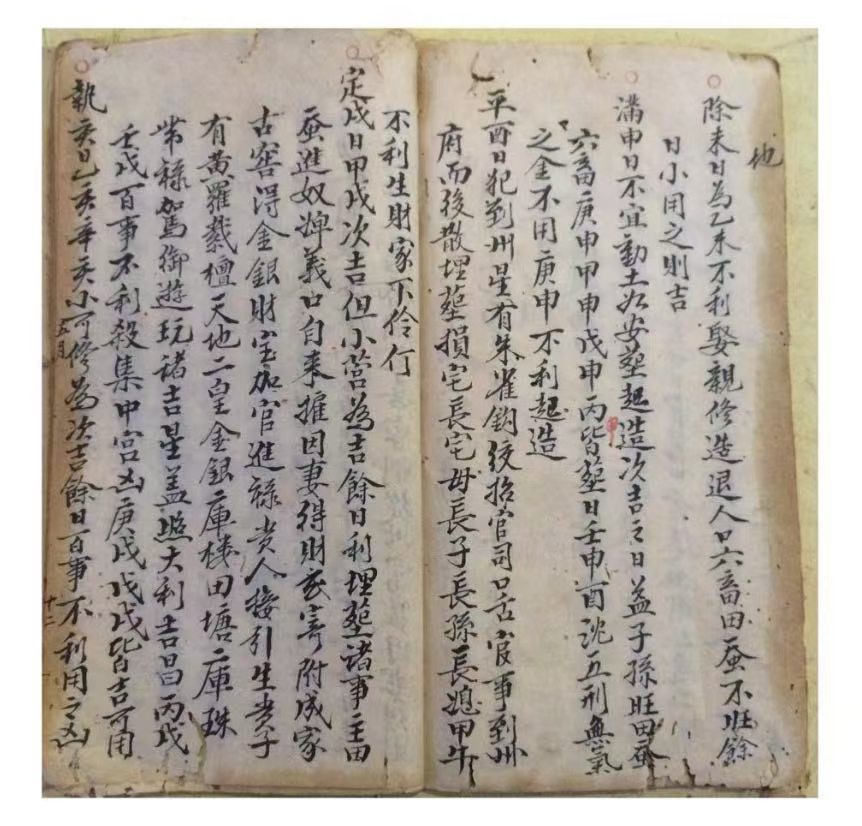 地
除未日為乙未不利娶親修造退人口六畜田蚕不旺餘
日小用之則吉
滿申日不宜動土安塟起造次吉之日益子孫旺田蚕
六畜庚申甲申戊申丙申皆塟日壬申酉沈五刑無氣
之金不用庚申不利起造
平酉日犯到州星有朱雀鈎絞招官司口舌官事到州
府而後散埋塟損宅長宅母長子長孫長媳甲午
不利生財家下伶仃
定戌日甲戌次吉但小営為吉餘日利埋塟諸事主田
蚕進奴婢義口自来摧因妻得財寄附成家
古窖淂金銀財宝加官進禄贵人接引生贵子
有黄羅紫檀天地二皇金銀庫楼田塘庫珠
帯禄駕御遊玩諸吉星盖照大利吉昌丙戌
壬戌百事不利殺集中宫凶庚戌戊戌皆吉可用
執亥日乙亥辛亥小可修為次吉餘日百事不利用之凶
五月
十二